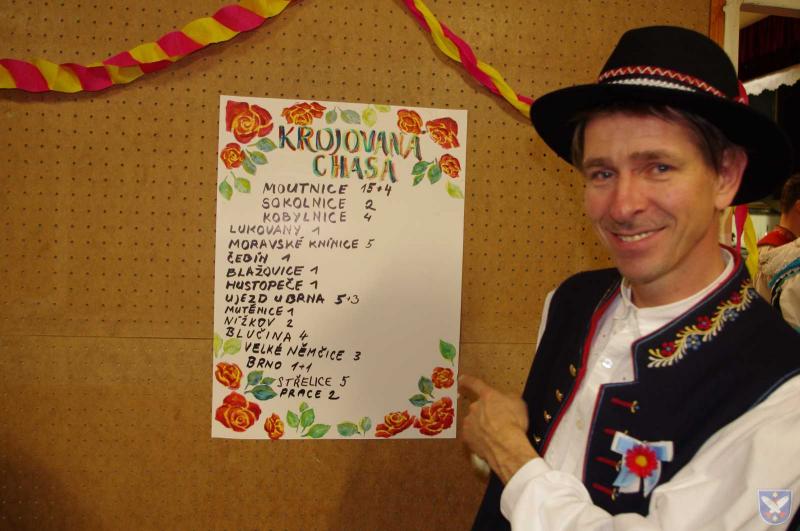 KROJOVANA
CHASA
MOUTNICE 15+4
SOKOLNICE 2
KOBYLNICE 4
LUKOVANY 1
MORAVSKÉ KNÍNICE 5
ČEBÍN 1
BLAŽOVICE 1
HUSTOPEČE 1
UJEZD U BRNA 5+3
MUTĚNICE 1
NÍŽKOV 2
BLUČINA 4
VELKÉ NĚMČICE 3
BRNO 1+1
STŘELICE 5
PRACE 2